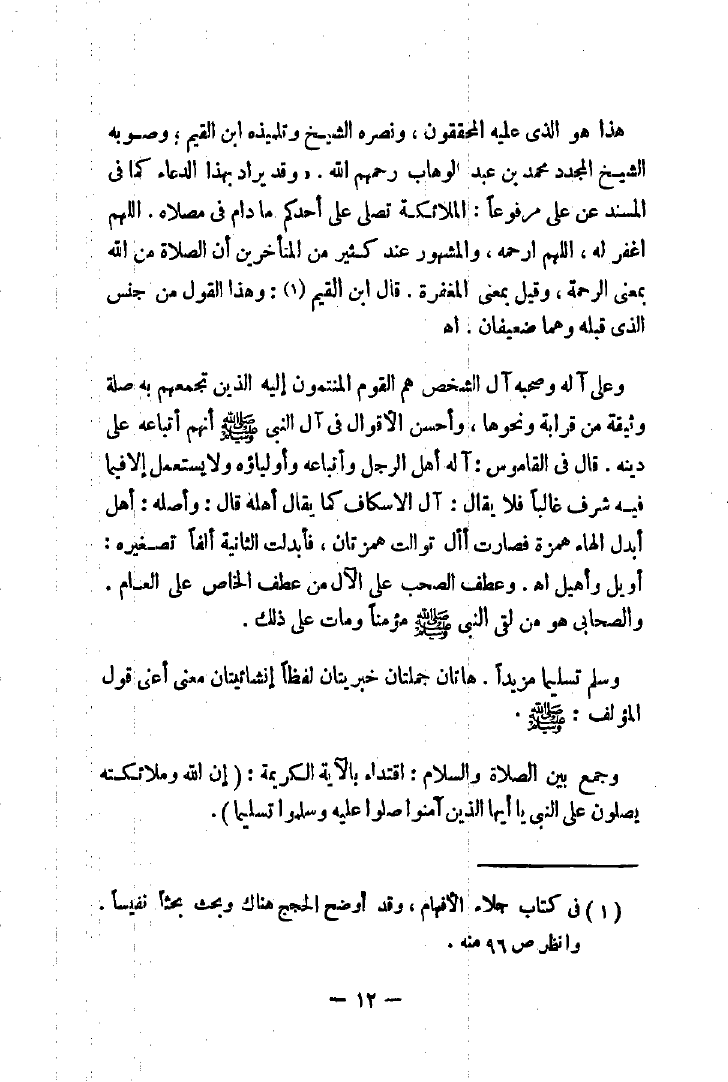 هذا هو الذى عليه المحققون ، ونصره الشيخ وتلميذه ابن القيم ؛ وصوبه
الشيخ المجدد محمد بن عبد الوهاب رحمهم الله . وقد يراد بهذا الدعاء كما فى
المسند عن على مرفوعاً : الملائكة تصلى على أحدكم ما دام فى مصلاه . اللهم
اغفر له ، اللهم ارحمه ، والمشهور عند كثير من المتأخرين أن الصلاة من الله
بمعنى الرحمة ، وقيل بمعنى المغفرة . قال ابن القيم (١) : وهذا القول من جنس
الذى قبله وهما ضعيفان . اه
وعلى آله وصحبه آل الشخص هم القوم المنتمون إليه الذين تجمعهم به صلة
وثيقة من قرابة ونحوها ، وأحسن الأقوال فى آل النبى ﷺ أنهم أتباعه على
دينه . قال فى القاموس : آله أهل الرجل وأتباعه وأولياؤه ولا يستعمل إلا فيما
فيه شرف غالباً فلا يقال : آل الاسكاف كما يقال أهله قال : وأصله : أهل
أبدل الهاء همزة فصارت أأل توالت همزتان ، فأبدلت الثانية ألفاً تصغيره :
أويل وأهيل اه . وعطف الصحب على الآل من عطف الخاص على العام .
والصحابى هو من لقى النبى ﷺ مؤمناً ومات على ذلك .
وسلم تسليما مزيداً . هاتان جملتان خبريتان لفظاً إنشائيتان معنى أعنى قول
المؤلف : ﷺ .
وجمع بين الصلاة والسلام : اقتداء بالآية الكريمة : ( إن الله وملائكته
يصلون على النبى يا أيها الذين آمنوا صلوا عليه وسلموا تسليما ) .
(١) فى كتاب جلاء الأفهام ، وقد أوضح الحجج هناك وبحث بحثاً نفيساً .
وانظر ص ٩٦ منه .
— ١٢ —